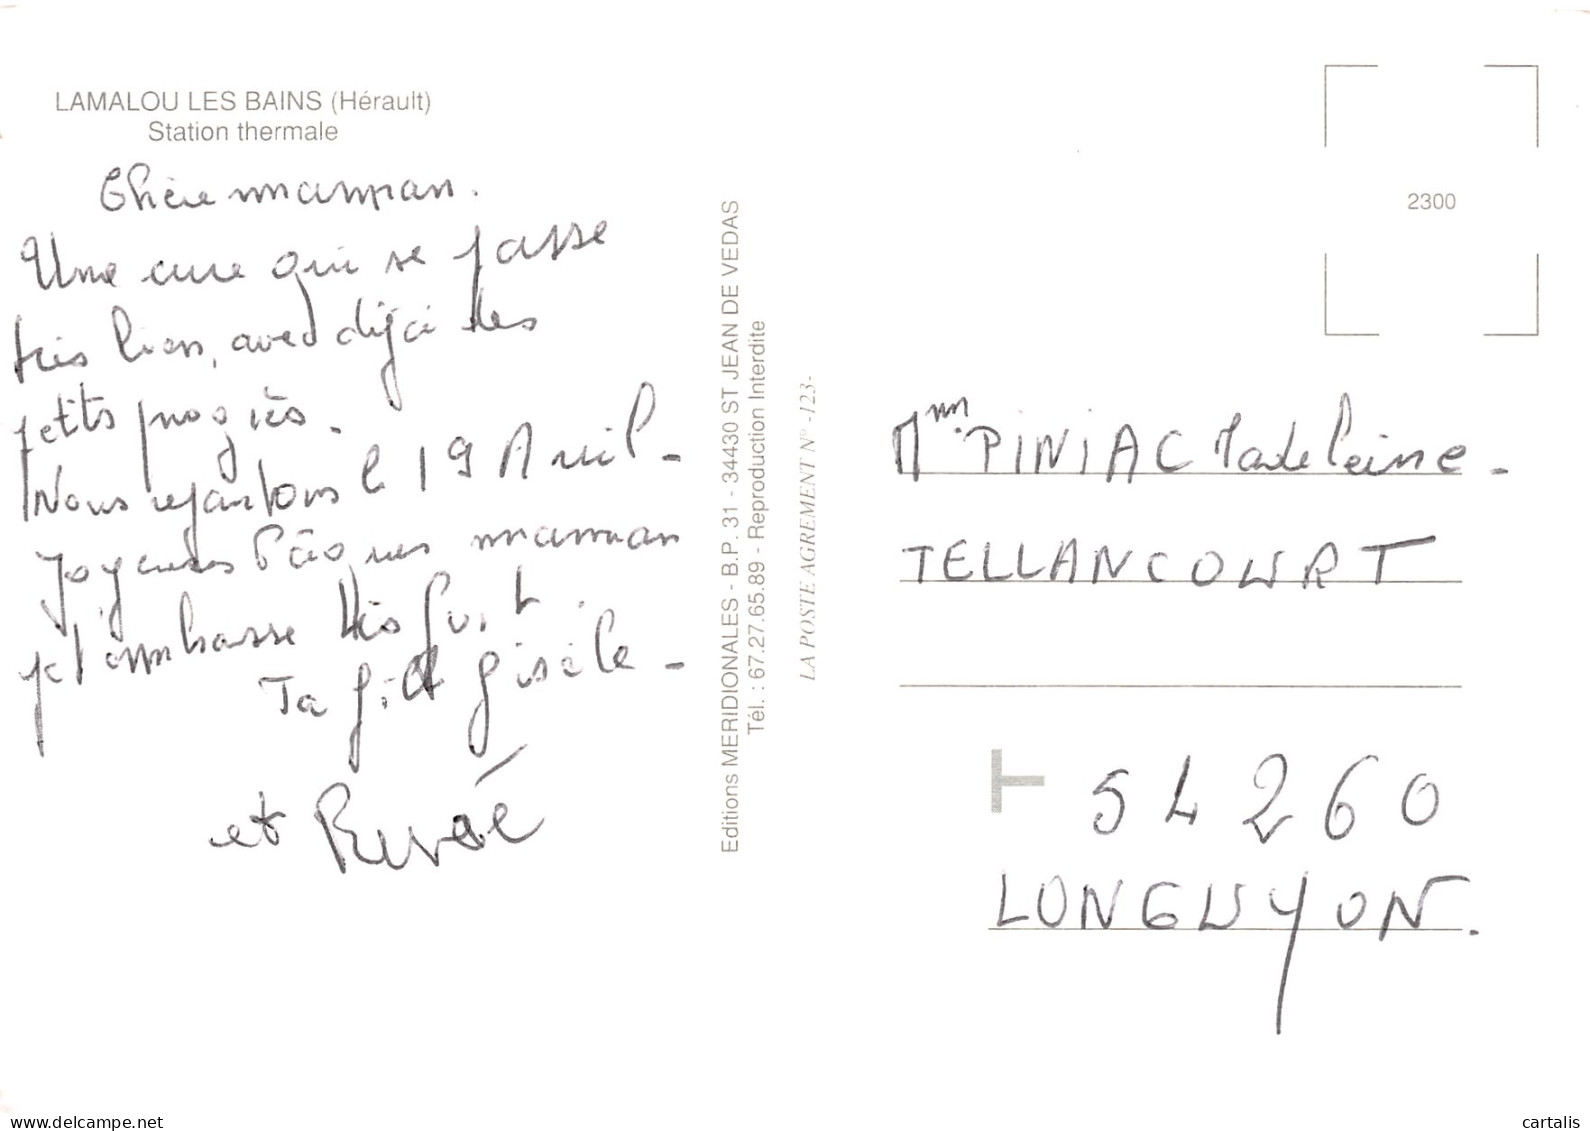 LAMALOU LES BAINS (Hérault)
Station thermale
Chère maman.
Une cure qui se passe
très bien, avec déjà des
petits progrès.
Nous repartons le 19 Avril -
Joyeuses Pâques maman
je t'embrasse très fort.
Ta fille Gisèle -
et René
Editions MERIDIONALES - B.P. 31 - 34430 ST JEAN DE VEDAS
Tél. : 67.27.65.89 - Reproduction Interdite
LA POSTE AGREMENT N° -123-
2300
Mme PINIAC Madeleine -
TELLANCOURT
54260
LONGUYON.
delcampe.net
cartalis